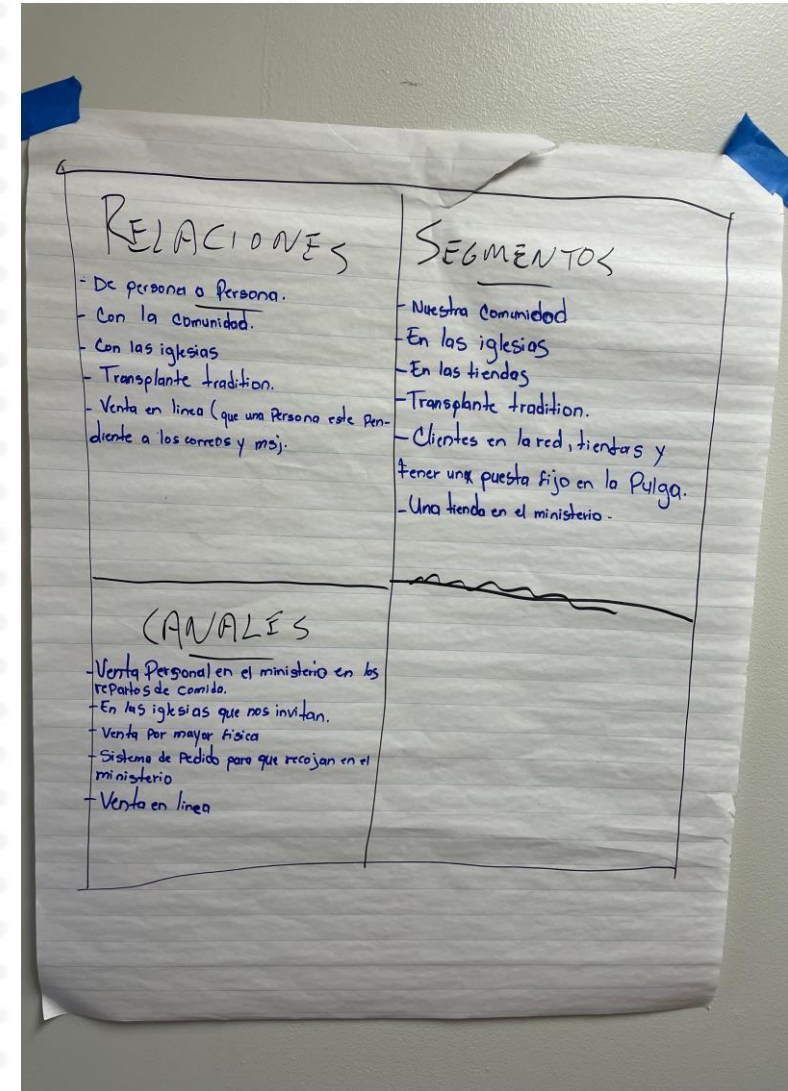 RELACIONES
- De persona a Persona.
- Con la comunidad.
- Con las iglesias
- Transplante tradition.
- Venta en linea (que una Persona este Pen-
diente a los correos y msj.
SEGMENTOS
- Nuestra Comunidad
- En las iglesias
- En las tiendas
- Transplante tradition.
- Clientes en la red, tientas y
tener una puesta fijo en la Pulga.
- Una tienda en el ministerio.
CANALES
- Venta Personal en el ministerio en los
repartos de comida.
- En las iglesias que nos invitan.
- Venta Por mayor fisica
- Sistema de Pedido para que recojan en el
ministerio
- Venta en linea